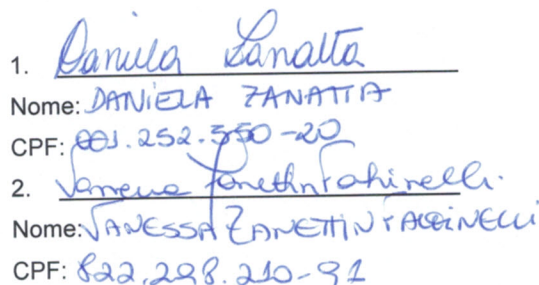 1. Daniela Zanatta
Nome: DANIELA ZANATTA
CPF: 001.252.550-20
2. Vanessa Zanettin Fachinelli
Nome: VANESSA ZANETTIN FACCINELLI
CPF: 822.298.210-91